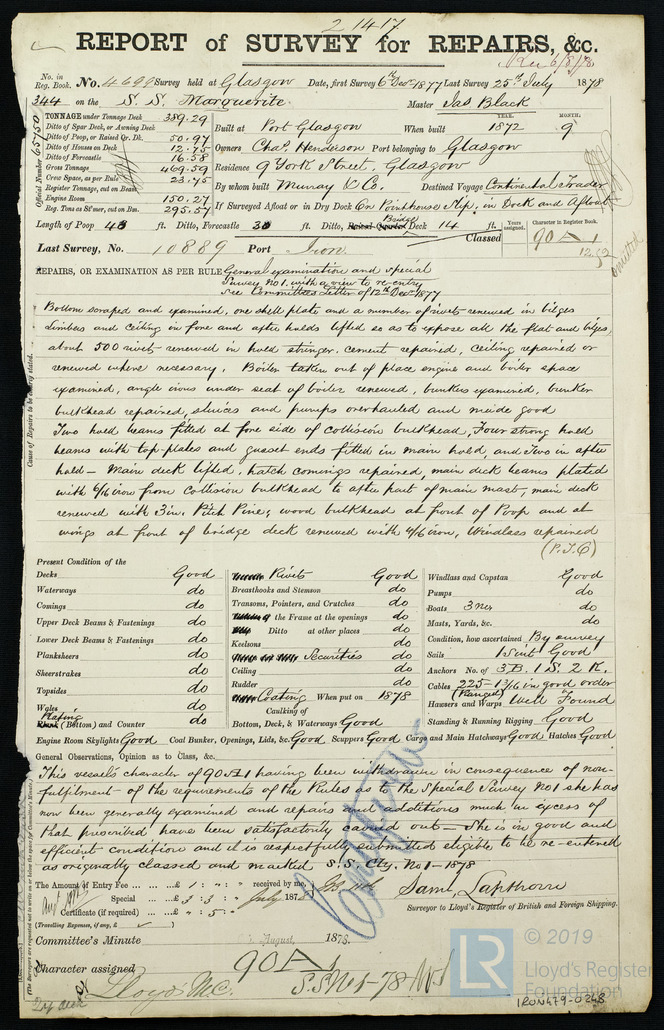 21417
REPORT of SURVEY for REPAIRS, &c.
No. in Reg. Book. No. 4699 Survey held at Glasgow Date, first Survey 6th Decr 1877 Last Survey 25th July 1878
344 on the S.S. Marguerite Master Jas Black
Official Number 65750
TONNAGE under Tonnage Deck 389.29
Ditto of Spar Deck, or Awning Deck
Ditto of Poop, or Raised Qr. Dk. 50.97
Ditto of Houses on Deck 12.75
Ditto of Forecastle 16.58
Gross Tonnage 469.59
Crew Space, as per Rule 23.75
Register Tonnage, cut on Beam
Engine Room 150.27
Reg. Tons as St'mer, cut on Bm. 295.57
Built at Port Glasgow When built YEAR. 1872 MONTH. 9
Owners Chas. Henderson Port belonging to Glasgow
Residence 9 York Street, Glasgow
By whom built Murray & Co. Destined Voyage Continental Trader
If Surveyed Afloat or in Dry Dock On Pointhouse Slip, in Dock and Afloat
Length of Poop 43 ft. Ditto, Forecastle 30 ft. Ditto, Bridge Deck 14 ft.
Years assigned. Character in Register Book.
Last Survey, No. 10889 Port Iron Classed 90 A 1
REPAIRS, OR EXAMINATION AS PER RULE General examination and special
Survey No 1. with a view to re-entry
see Committees Letter of 12th Decr 1877
Cause of Repairs to be clearly stated.
Bottom scraped and examined, one shell plate and a number of rivets renewed in bilges
limbers and ceiling in fore and after holds lifted so as to expose all the flat and bilges,
about 500 rivets renewed in hold stringer, cement repaired, ceiling repaired or
renewed where necessary. Boiler taken out of place engine and boiler space
examined, angle irons under seat of boiler renewed, bunkers examined, bunker
bulkhead repaired, sluices and pumps overhauled and made good
Two hold beams fitted at fore side of collision bulkhead, Four strong hold
beams with top plates and gusset ends fitted in main hold, and Two in after
hold – Main deck lifted, hatch comings repaired, main deck beams plated
with 6/16 iron from Collision bulkhead to after part of main mast, main deck
renewed with 3 in. Pitch Pine; wood bulkhead at front of Poop and at
wings at front of bridge deck renewed with 4/16 iron, Windlass repaired
(P.T.O)
Present Condition of the
Decks Good
Waterways do
Comings do
Upper Deck Beams & Fastenings do
Lower Deck Beams & Fastenings do
Planksheers do
Sheerstrakes do
Topsides do
Wales do
Plating (Bottom) and Counter do
Rivets Good
Breasthooks and Stemson do
Transoms, Pointers, and Crutches do
the Frame at the openings do
Ditto at other places do
Keelsons do
Securities do
Ceiling do
Rudder do
Coating When put on 1878
Caulking of
Bottom, Deck, & Waterways Good
Windlass and Capstan Good
Pumps do
Boats 3 No. do
Masts, Yards, &c. do
Condition, how ascertained By survey
Sails 1 Suit Good
Anchors No. of 3 B. 1 S. 2 K.
Cables 225 - 1 3/16 in good order
(Ranged)
Hawsers and Warps Well Found
Standing & Running Rigging Good
Engine Room Skylights Good Coal Bunker, Openings, Lids, &c. Good Scuppers Good Cargo and Main Hatchways Good Hatches Good
General Observations, Opinion as to Class, &c.
This vessels character of 90 A 1 having been withdrawn in consequence of non-
fulfilment of the requirements of the Rules as to the Special Survey No 1 she has
now been generally examined and repairs and additions much in excess of
that prescribed have been satisfactorily carried out – She is in good and
efficient condition and it is respectfully submitted eligible to be re-entered
as originally classed and marked S.S. Cty. No 1 - 1878
The Amount of Entry Fee ... ... £ 1 : " : " received by me,
Special ... £ 3 : 3 : " July 1878
Certificate (if required) ... " : 5 : "
(Travelling Expenses, if any, £ )
Saml Lapthorn
Surveyor to Lloyd's Register of British and Foreign Shipping.
Committee's Minute August, 1878.
Character assigned 90 A 1
Lloyds M.C. S.S No 1-78
LR
© 2019
Lloyd's Register
Foundation
IRON479-0268